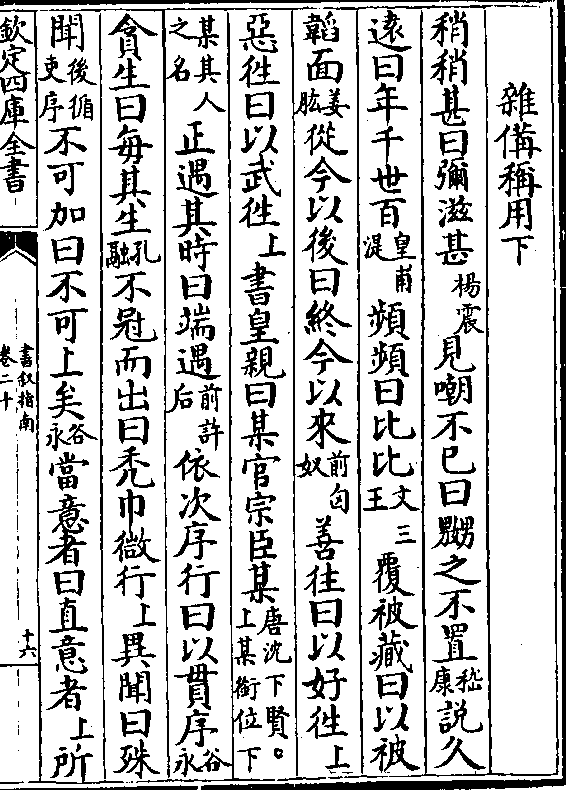 雜俻稱用下
稍稍甚曰彌滋甚楊震見嘲不已曰嬲之不置嵇康說久
遠曰年千世百皇甫湜頻頻曰比比文三王覆被藏曰以被
韜面姜肱從今以後曰終今以來前匈奴善徃曰以好徃上
惡徃曰以武徃上書皇親曰某官宗臣某唐沈下賢。上某銜位下
某其人之名正遇其時曰端遇前許后依次序行曰以貫序谷永
貪生曰每其生孔融不冠而出曰禿巾微行上異聞曰殊
聞後循吏序不可加曰不可上矣谷永當意者曰直意者上所
欽定四庫全書
書叙指南
卷二十
十六